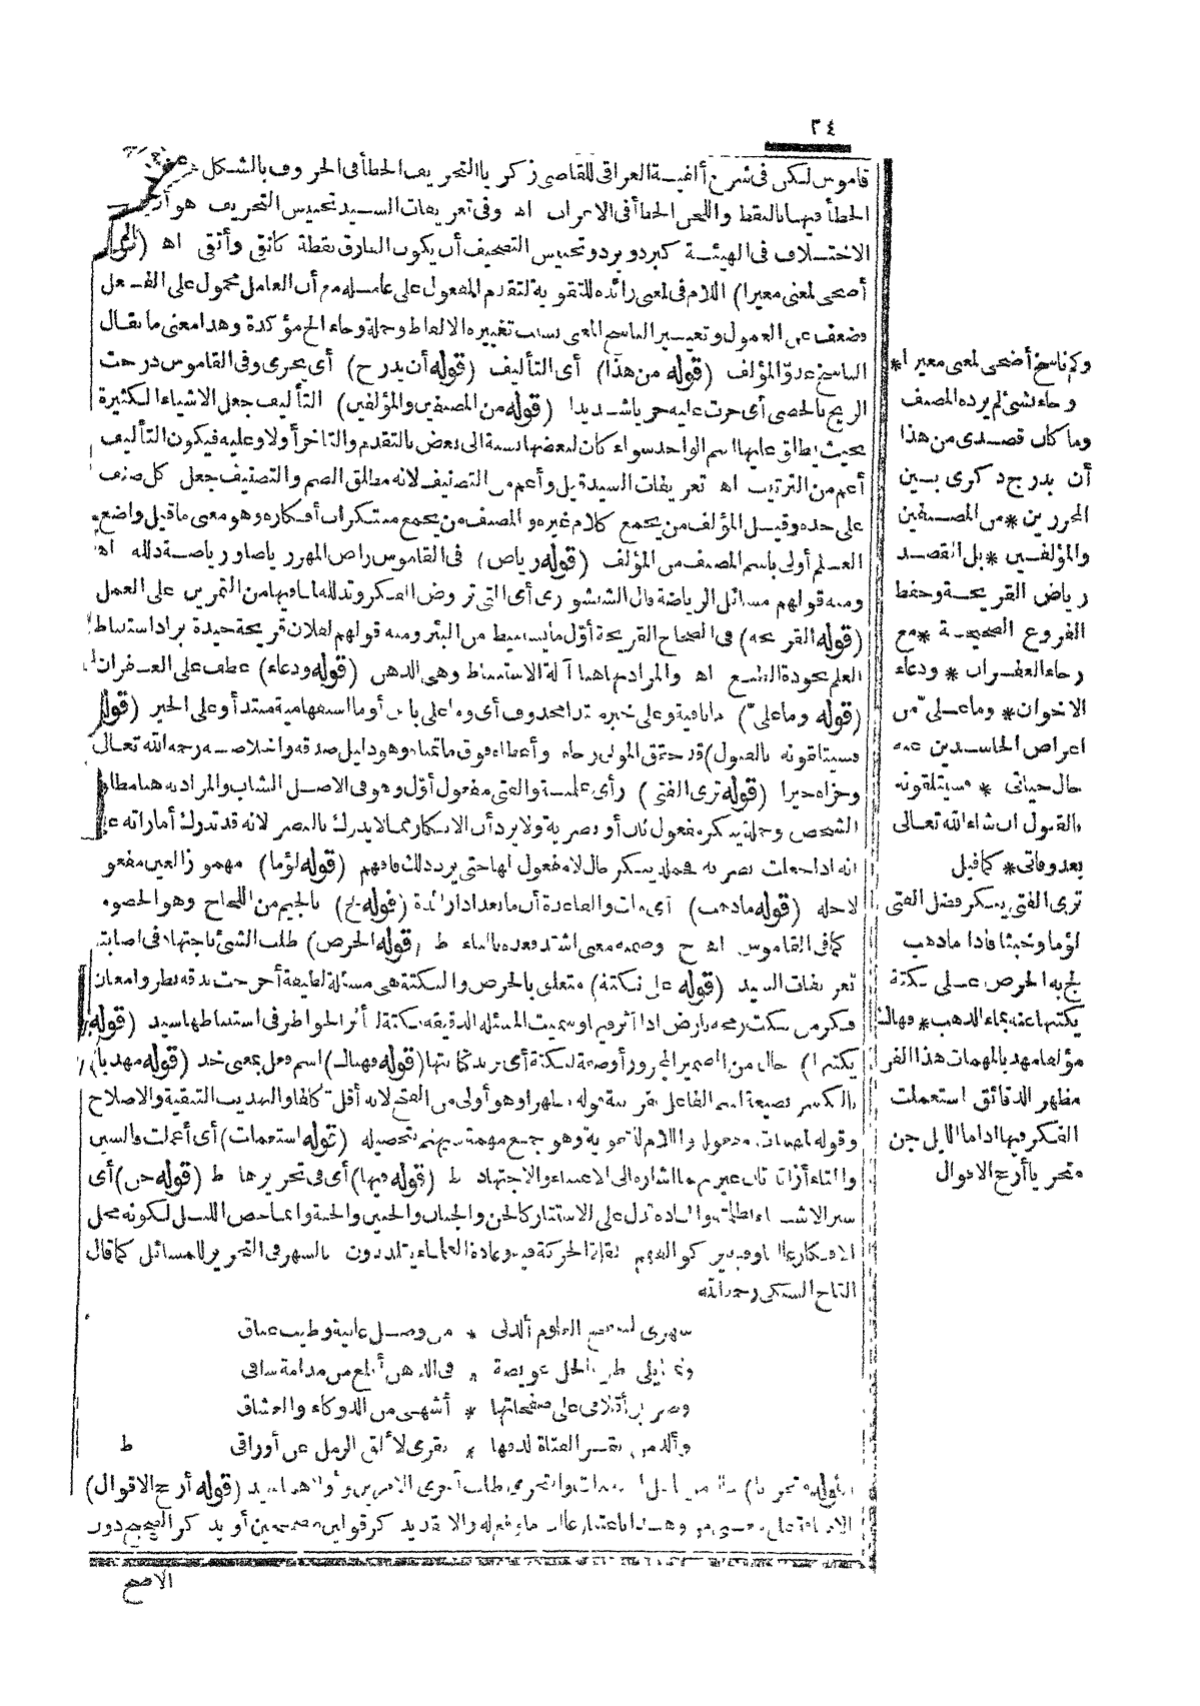 ٢٤
قاموس لكن فى شرح ألفية العراقى للقاضى زكريا التحريف الخطأ فى الحروف بالشكل
الخطأ فيها بالنقط واللحن الخطأ فى الاعراب اه وفى تعريفات السيد تجنيس التحريف هو
الاختلاف فى الهيئة كبرد وبرد وتجنيس التصحيف أن يكون الفارق نقطة كانقى وأتقى اه (قوله
أضحى لمعنى مغيرا) اللام فى لمعنى زائدة للتقوية لتقدم المفعول على عامله مع أن العامل محمول على الفعل
وضعف عن العمول وتغيير الناسخ المعنى بسبب تغييره الالفاظ وجملة وجاء الخ مؤكدة وهذا معنى ما يقال
الناسخ عدو المؤلف (قوله من هذا) أى التأليف (قوله أن يدرج) أى يجرى وفى القاموس درجت
الريح بالحصى أى جرت عليه جريا شديدا (قوله من المصنفين والمؤلفين) التأليف جعل الاشياء الكثيرة
بحيث يطلق عليها اسم الواحد سواء كان لبعضها نسبة الى بعض بالتقدم والتاخر أولا وعليه فيكون التأليف
أعم من الترتيب اه تعريفات السيد قيل وأعم من التصنيف لانه مطلق الضم والتصنيف جعل كل صنف
على حده وقيل المؤلف من يجمع كلام غيره والمصنف من يجمع مبتكرات أفكاره وهو معنى ما قيل واضع
العلم أولى باسم المصنف من المؤلف (قوله رياض) فى القاموس راض المهر رياضا ورياضة ذلله اه
ومنه قولهم مسائل الرياضة قال الشنشورى أى التى تروض الفكر وتذلله لما فيها من التمرين على العمل
(قوله القريحه) فى الصحاح القريحة أول ما يستنبط من البئر ومنه قولهم لفلان قريحة جيدة يراد استنباط
العلم بجودة الطبع اه والمراد بها هنا آلة الاستنباط وهى الذهن (قوله ودعاء) عطف على الغفران
(قوله وما على) ما نافية وعلى خبر مبتدا محذوف أى وما على باس أو ما استفهامية مبتدأ وعلى الخبر (قوله
فسيتلقونه بالقبول) قد حقق المولى رجاه وأعطاه فوق ما تمناه وهو دليل صدقه واخلاصه رحمه الله تعالى
وجزاه خيرا (قوله ترى الفتى) رأى علمية والفتى مفعول أول وهو فى الاصل الشاب والمراد به هنا مطلق
الشخص وجملة ينكر مفعول ثان أو بصرية ولا يرد أن الانكار مما لا يدرك بالبصر لانه قد تدرك أماراته على
انه اذا جعلت بصرية فجملة ينكر حال لا مفعول لها حتى يرد ذلك فافهم (قوله لؤما) مهموز العين مفعو
لاجله (قوله ما ذهب) أى مات والقاعدة أن ما بعد اذا زائدة (قوله لج) بالجيم من اللجاج وهو الخصومة
كما فى القاموس اه ح وضمنه معنى اشتد فعداه بالباء ط (قوله الحرص) طلب الشئ باجتهاد فى اصابته
تعريفات السيد (قوله على نكتة) متعلق بالحرص والنكتة هى مسئلة لطيفة أخرجت بدقة نظر وامعان
فكر من نكت رمحه بارض اذا أثر فيها وسميت المسئلة الدقيقة نكتة لتأثر الخواطر فى استنباطها سيد (قوله
يكتبها) حال من الضمير المجرور أو صفة لنكتة أى يريد كتابتها (قوله فهاك) اسم فعل بمعنى خذ (قوله مهذبا)
بالكسر بصيغة اسم الفاعل بقرينة قوله مظهرا وهو أولى من الفتح لانه أقل تكلفا والتهذيب التنقية والاصلاح
وقوله لمهمات مفعول واللام للتقوية وهو جمع مهمة ما يهتم بتحصيله (قوله استعملت) أى أعملت فالسين
والتاء زائدتان عبر بهما اشارة الى الاعتناء والاجتهاد ط (قوله فيها) أى فى تحريرها ط (قوله جن) أى
ستر الاشياء بظلمته والمادة تدل على الاستتار كالجن والجنان والجنين والجنة وانما خص الليل لكونه محل
الافكار غالبا وفيه يزكو الفهم لقلة الحركة فيه وعادة العلماء يتلذذون بالسهر فى التحرير للمسائل كما قال
التاج السبكى رحمه الله
سهرى لتنقيح العلوم ألذ لى * من وصل غانية وطيب عناق
وتمايلى طربا لحل عويصة * فى الذهن أبلغ من مدامة ساقى
وصرير أقلامى على صفحاتها * أشهى من الدوكاء والعشاق
وألذ من نقر الفتاة لدفها * نقرى لألقى الرمل عن أوراقى ط
(قوله متحريا) التحرى طلب أحرى الامرين وأولاهما سيد (قوله أرجح الاقوال)
وهذا باعتبار غالب ما وقع له والا فقد يذكر قولين مصححين أو يذكر الصحيح دون
الاصح
وكم ناسخ أضحى لمعنى مغيرا *
وجاء بشئ لم يرده المصنف
وما كان قصدى من هذا
أن يدرج ذكرى بين
المحررين * من المصنفين
والمؤلفين * بل القصد
رياض القريحة وحفظ
الفروع الصحيحة * مع
رجاء الغفران * ودعاء
الاخوان * وما على من
اعراض الحاسدين عنه
حال حياتى * فسيتلقونه
بالقبول ان شاء الله تعالى
بعد وفاتى * كما قيل
ترى الفتى ينكر فضل الفتى
لؤما وخبثا فاذا ما ذهب
لج به الحرص على نكتة
يكتبها عنه بماء الذهب * فهاك
مؤلفا مهذبا لمهمات هذا الفن
مظهر الدقائق استعملت
الفكر فيها اذا ما الليل جن
متحريا أرجح الاقوال